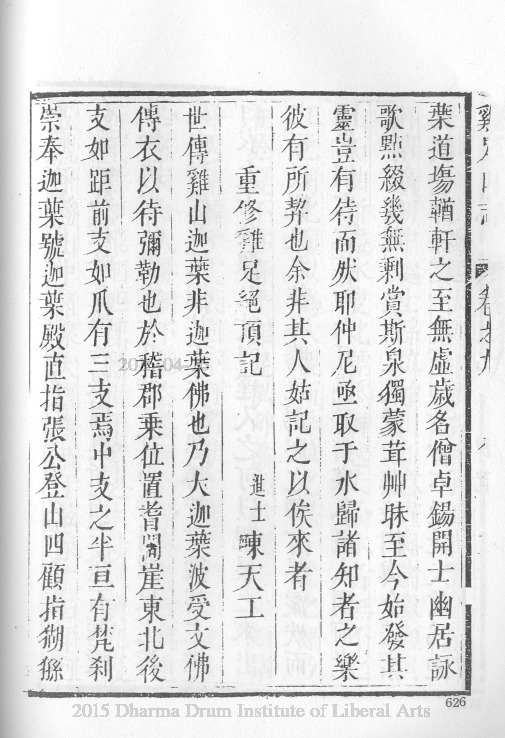 雞足山志 卷之九
葉道場輶軒之至無虛歲名僧卓錫開士幽居詠
歌㸃綴幾無剩賞斯泉獨蒙茸艸昧至今始發其
靈豈有待而然耶仲尼亟取于水歸諸知者之樂
彼有所契也余非其人姑記之以俟來者
重修雞足絕頂記
進士陳天工
世傳雞山迦葉非迦葉佛也乃大迦葉波受文佛
傳衣以待彌勒也於稽郡乘位置耆闍崖東北後
支如距前支如爪有三支焉中支之半亘有梵剎
崇奉迦葉號迦葉殿直指張公登山四顧指猢猻
626
2015 Dharma Drum Institute of Liberal Arts